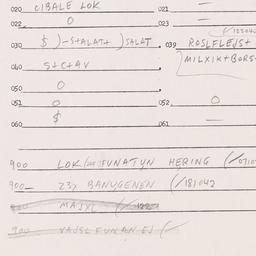 020 CIBALE LOK 021 —
022 O 023 —
030 $ )-S+ALAT+ )SALAT 039 ROSLFLEJS+
040 S+C+AV MILXIK+BORS
050 O
051 O 052 O
060 $ 061 —
900 LOK FUNATYN HERING
900 23X BANYGENEN (/181042
900 MAJXL
900 VAJSL FUNAN EJ (/